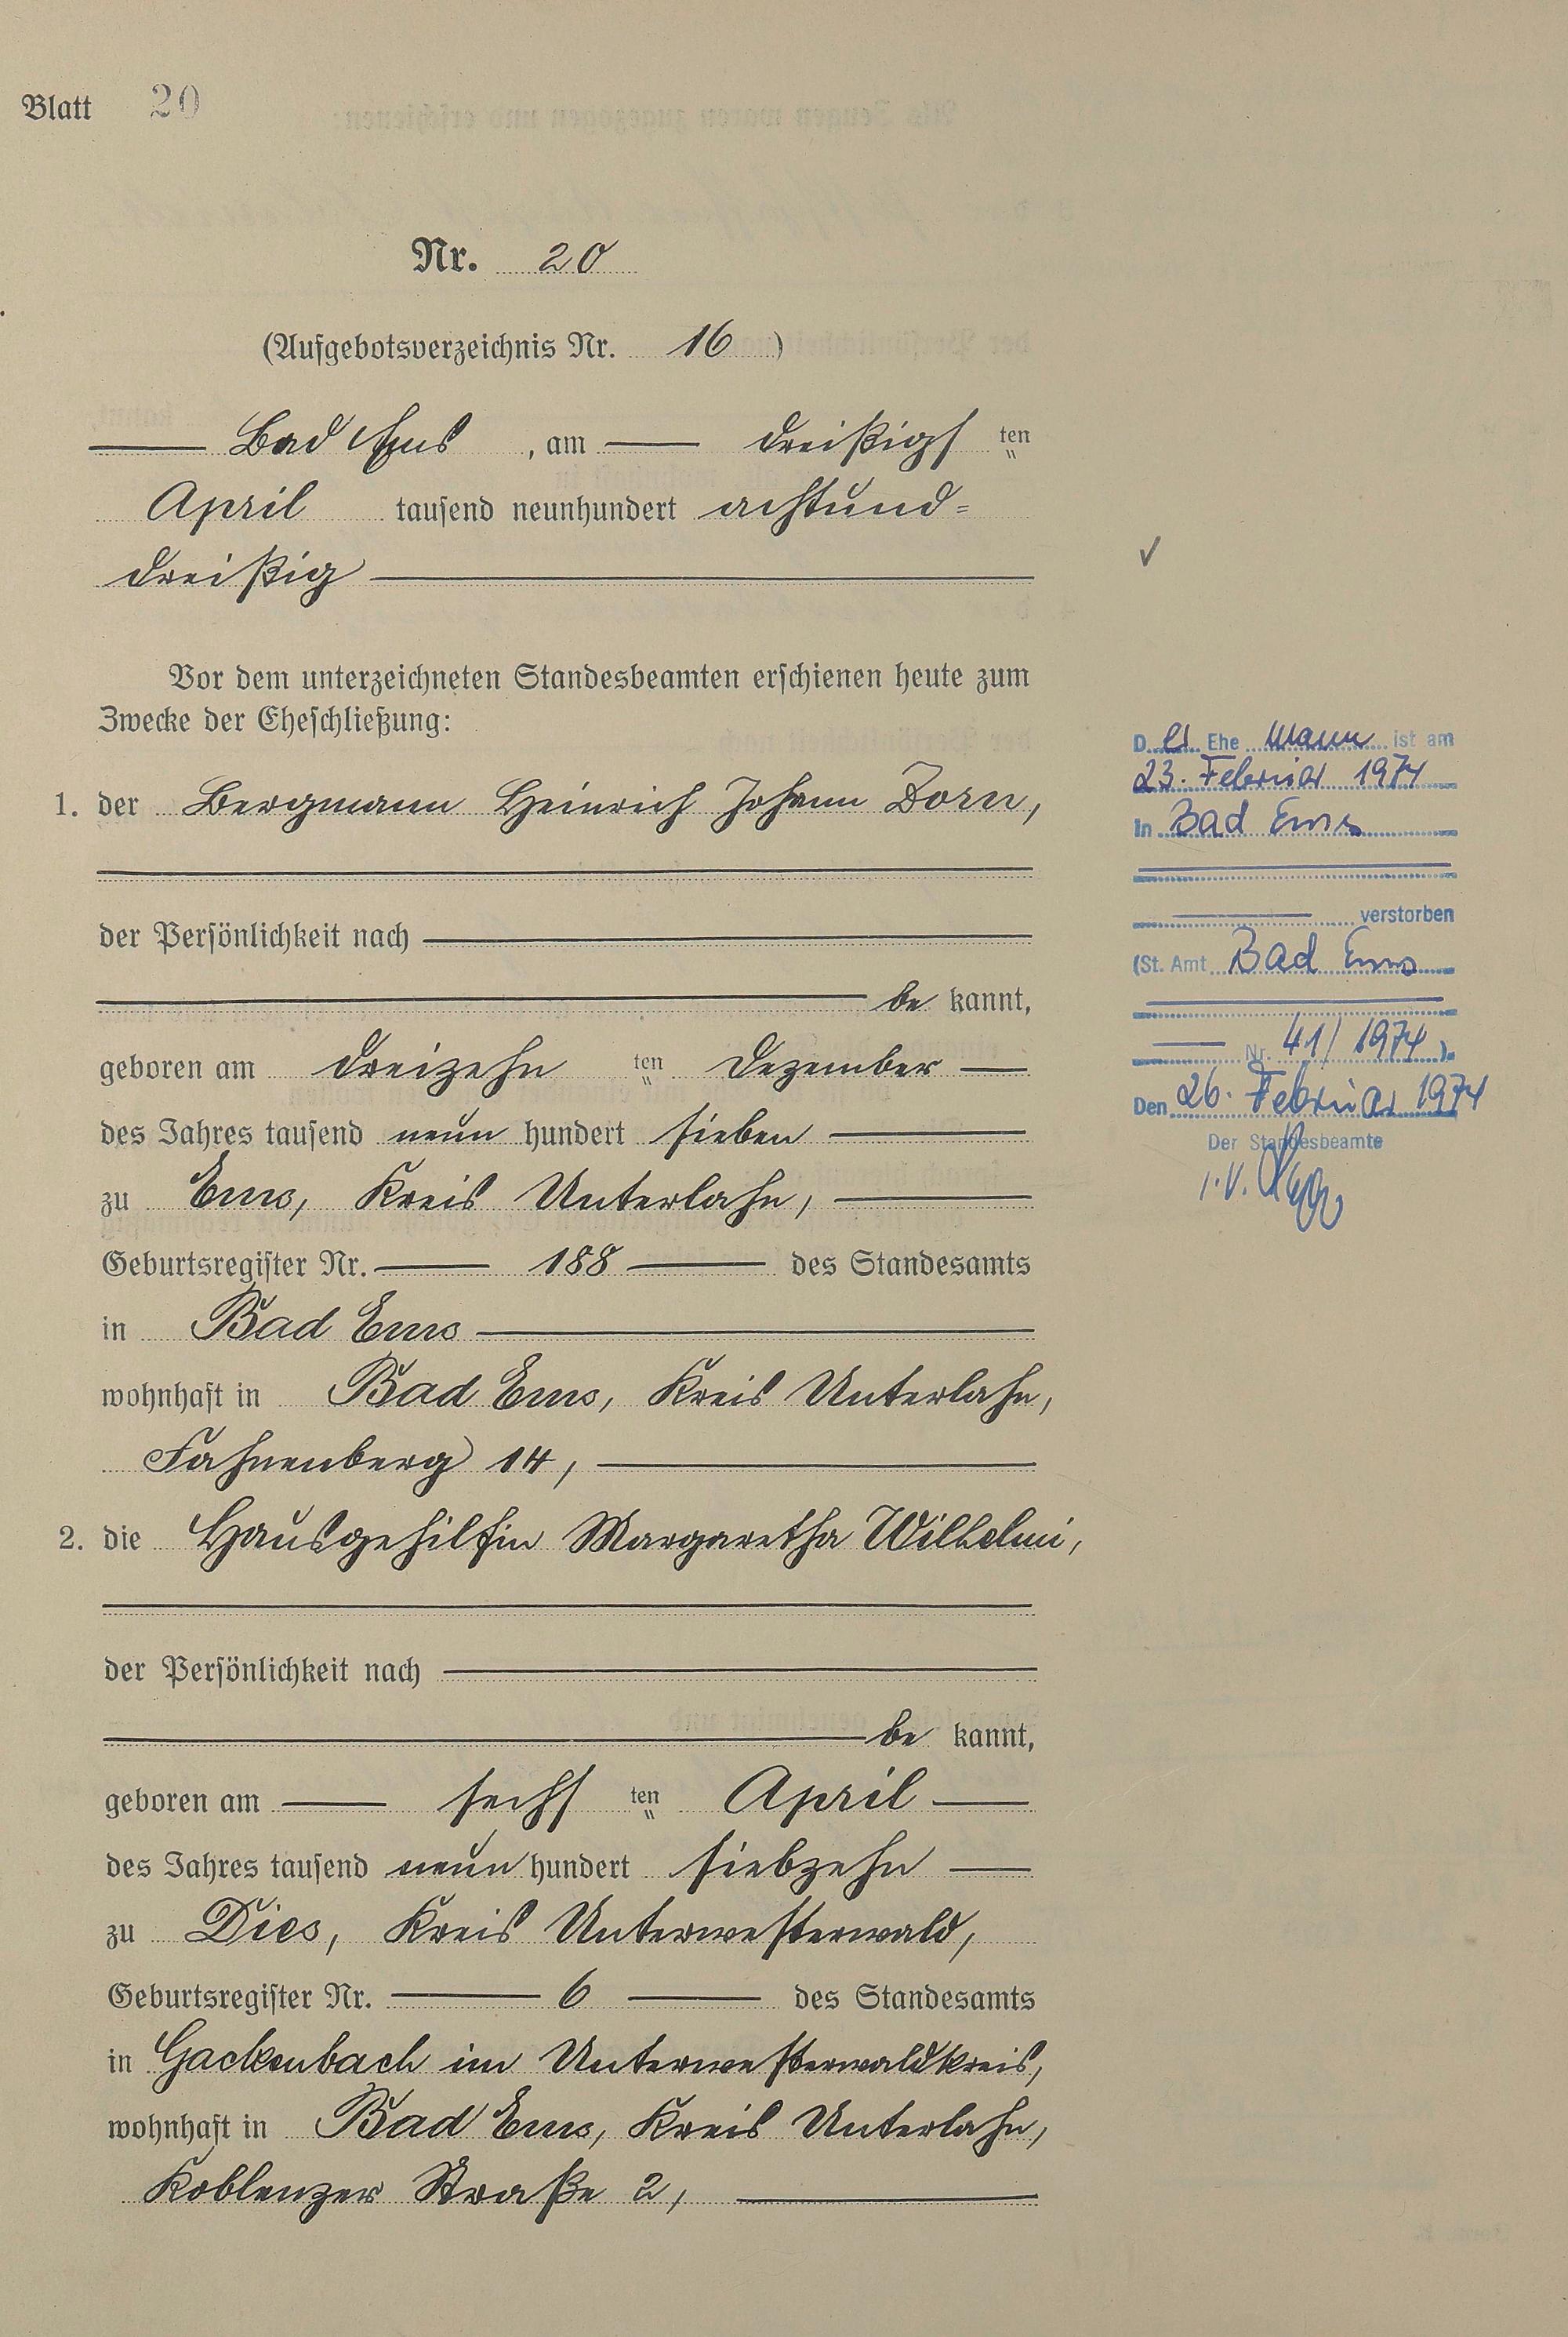 Blatt 20
Nr. 20
(Aufgebotsverzeichnis Nr. 16)
Bad Ems, am dreißigsten
April tausend neunhundert achtund=
dreißig
Vor dem unterzeichneten Standesbeamten erschienen heute zum
Zwecke der Eheschließung:
1. der Bergmann Heinrich Johann Dorn,
der Persönlichkeit nach
be kannt,
geboren am dreizehn ten Dezember
des Jahres tausend neun hundert sieben
zu Ems, Kreis Unterlahn,
Geburtsregister Nr. 188 des Standesamts
in Bad Ems
wohnhaft in Bad Ems, Kreis Unterlahn,
Fahnenberg 14,
2. die Hausgehilfin Margaretha Wilhelmi,
der Persönlichkeit nach
be kannt,
geboren am sechs ten April
des Jahres tausend neun hundert siebzehn
zu Dies, Kreis Unterwesterwald,
Geburtsregister Nr. 6 des Standesamts
in Gackenbach im Unterwesterwaldkreis,
wohnhaft in Bad Ems, Kreis Unterlahn,
Koblenzer Straße 2,
D er Ehe mann ist am
23. Februar 1974
in Bad Ems
verstorben
(St. Amt Bad Ems
Nr. 41/1974).
Den 26. Februar 1974
Der Standesbeamte
i.V.